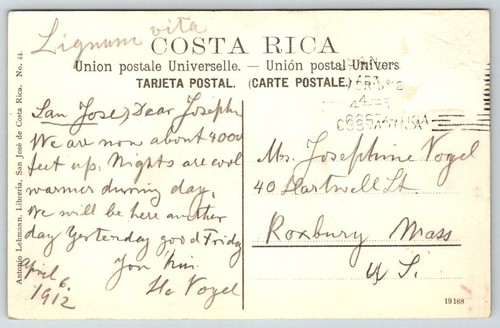 Lignum vita
COSTA RICA
Union postale Universelle. — Unión postal Univers
TARJETA POSTAL. (CARTE POSTALE.)
Antonio Lehmann, Librería, San José de Costa Rica. No. 44.
San Jose, Dear Joseph
We are now about 4000
feet up. Nights are cool
warmer during day.
We will be here another
day Yesterday good Friday
April 6.
1912
Vogel
Ms. Josephine Vogel
40 Hartwell St
Roxbury Mass
U S.
19168